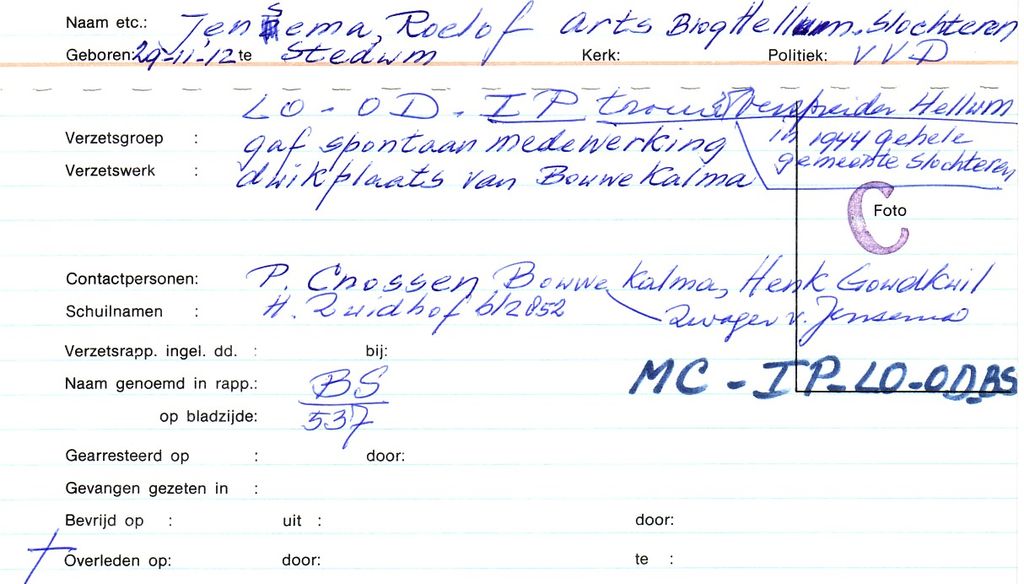 Naam etc.: Jensema, Roelof Arts Hellum, Slochteren
Geboren: 29-11-12 te Stedum Kerk: Politiek: VVD
LO - OD - IP trouw verspreider Hellum
in 1944 gehele
gemeente Slochteren
Verzetsgroep : gaf spontaan medewerking
Verzetswerk : duikplaats van Bouwe Kalma
C
Foto
Contactpersonen: P. Cnossen Bouwe Kalma, Henk Goudkuil
Schuilnamen : H. Zuidhof blz 852 Zwager v. Jensema
Verzetsrapp. ingel. dd. : bij:
MC - IP - LO - OD - BS
Naam genoemd in rapp.: BS
op bladzijde: 537
Gearresteerd op : door:
Gevangen gezeten in :
Bevrijd op : uit : door:
† Overleden op: door: te :